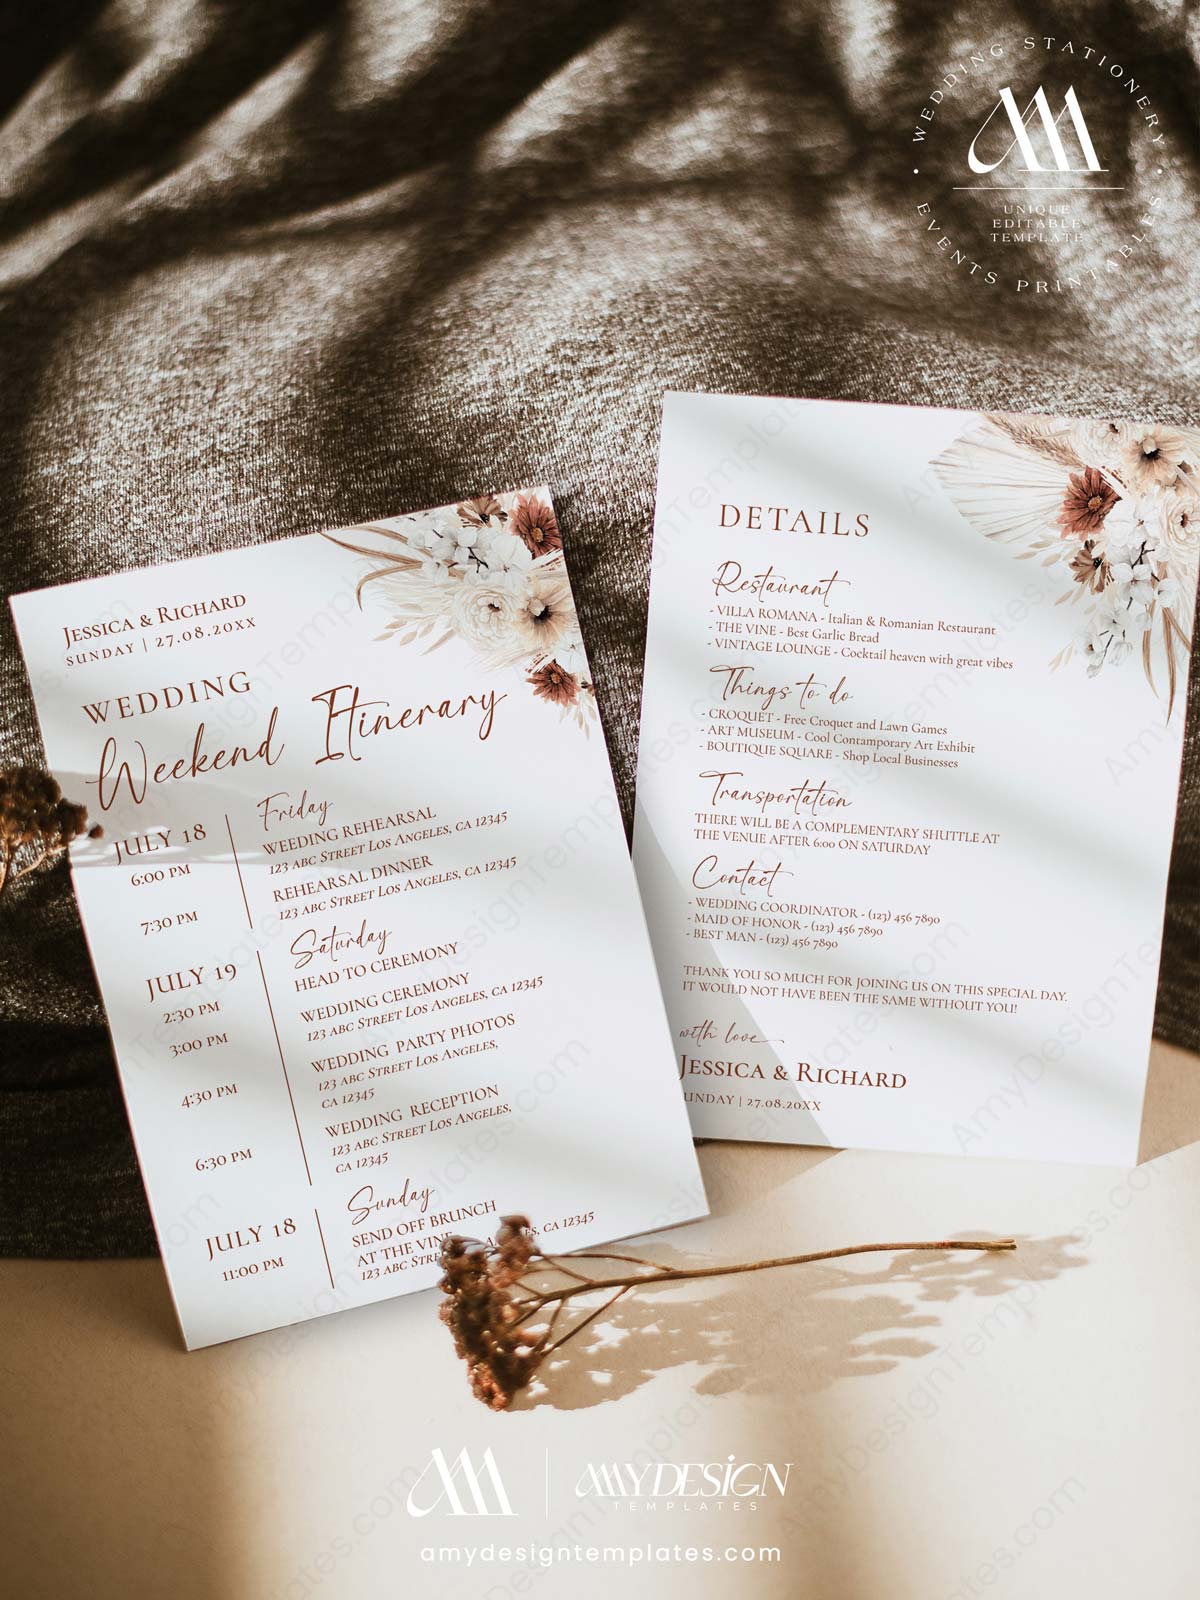 WEDDING STATIONERY
UNIQUE
EDITABLE
TEMPLATE
EVENTS PRINTABLES
JESSICA & RICHARD
SUNDAY | 27.08.20XX
WEDDING
Weekend Itinerary
Friday
JULY 18
WEEDING REHEARSAL
123 ABC STREET LOS ANGELES, CA 12345
6:00 PM
REHEARSAL DINNER
123 ABC STREET LOS ANGELES, CA 12345
7:30 PM
Saturday
JULY 19
HEAD TO CEREMONY
2:30 PM
WEDDING CEREMONY
123 ABC STREET LOS ANGELES, CA 12345
3:00 PM
WEDDING PARTY PHOTOS
123 ABC STREET LOS ANGELES,
CA 12345
4:30 PM
WEDDING RECEPTION
123 ABC STREET LOS ANGELES,
CA 12345
6:30 PM
Sunday
JULY 18
SEND OFF BRUNCH
AT THE VINE
11:00 PM
123 ABC CA 12345
DETAILS
Restaurant
- VILLA ROMANA - Italian & Romanian Restaurant
- THE VINE - Best Garlic Bread
- VINTAGE LOUNGE - Cocktail heaven with great vibes
Things to do
- CROQUET - Free Croquet and Lawn Games
- ART MUSEUM - Cool Contomporary Art Exhibit
- BOUTIQUE SQUARE - Shop Local Businesses
Transportation
THERE WILL BE A COMPLEMENTARY SHUTTLE AT
THE VENUE AFTER 6:00 ON SATURDAY
Contact
- WEDDING COORDINATOR - (123) 456 7890
- MAID OF HONOR - (123) 456 7890
- BEST MAN - (123) 456 7890
THANK YOU SO MUCH FOR JOINING US ON THIS SPECIAL DAY.
IT WOULD NOT HAVE BEEN THE SAME WITHOUT YOU!
with love
JESSICA & RICHARD
SUNDAY | 27.08.20XX
AMYDESIGN
TEMPLATES
amydesigntemplates.com